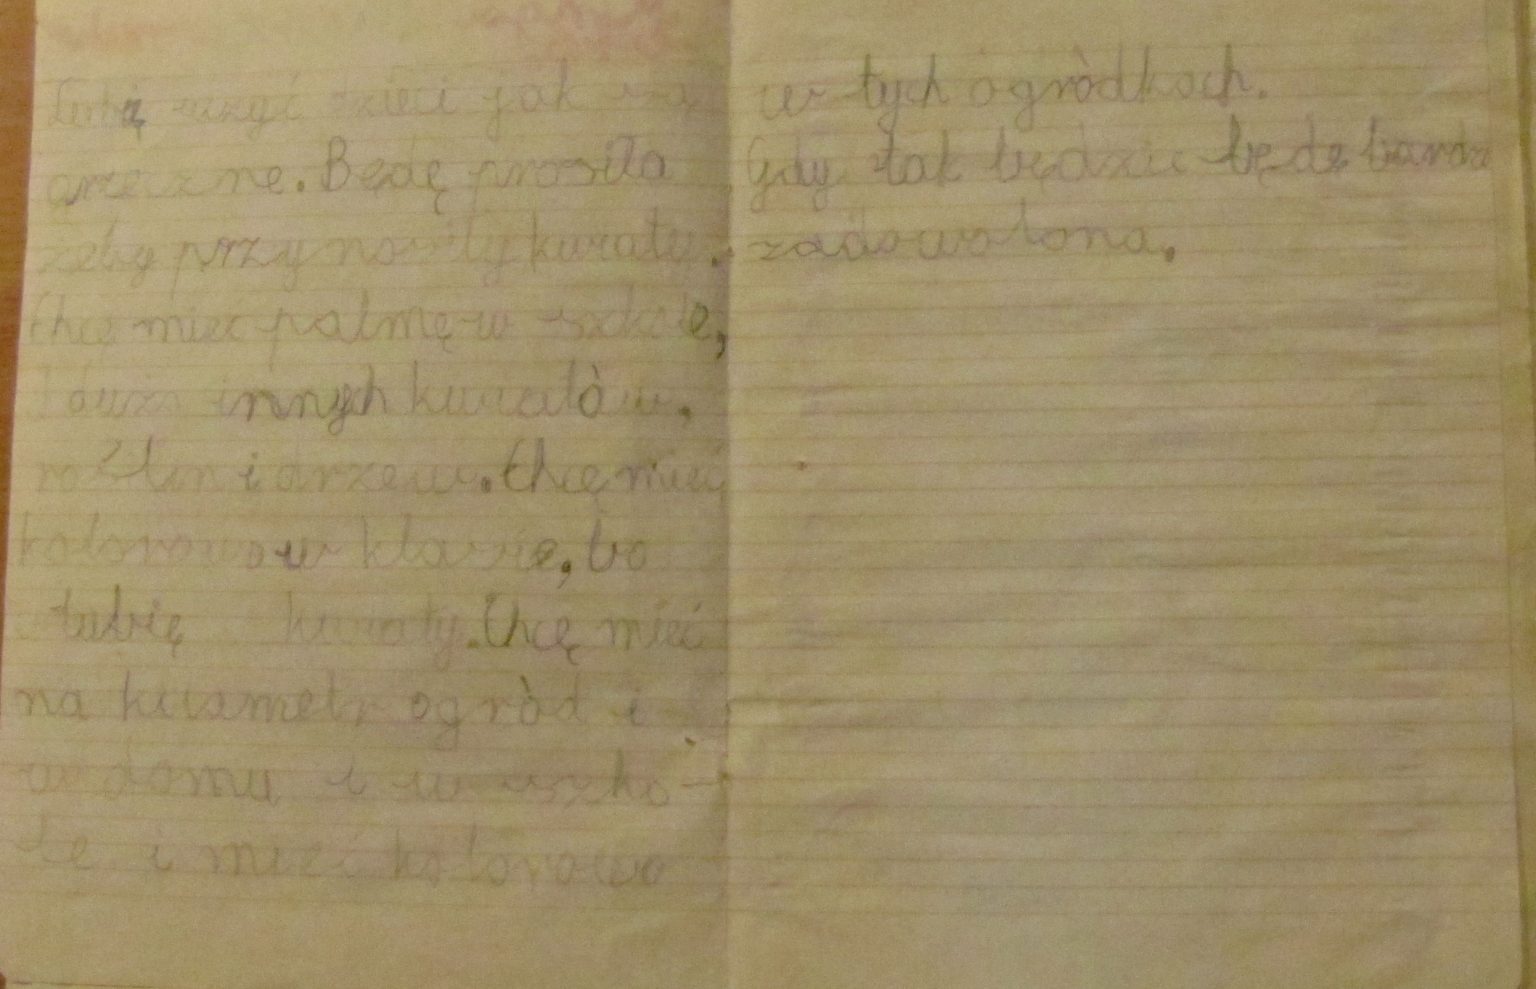 Lubię uczyć dzieci jak są
grzeczne. Będę prosiła
żeby przynosiły kwiaty.
Chcę mieć palmę w szkole,
I dużo innych kwiatów,
roślin i drzew. Chcę mieć
kolorowo w klasie, bo
lubię kwiaty. Chcę mieć
na kwiametr ogród i
w domu i w szko-
le i mieć kolorowo
w tych ogródkach.
Gdy tak będzie będę bardzo
zadowolona.